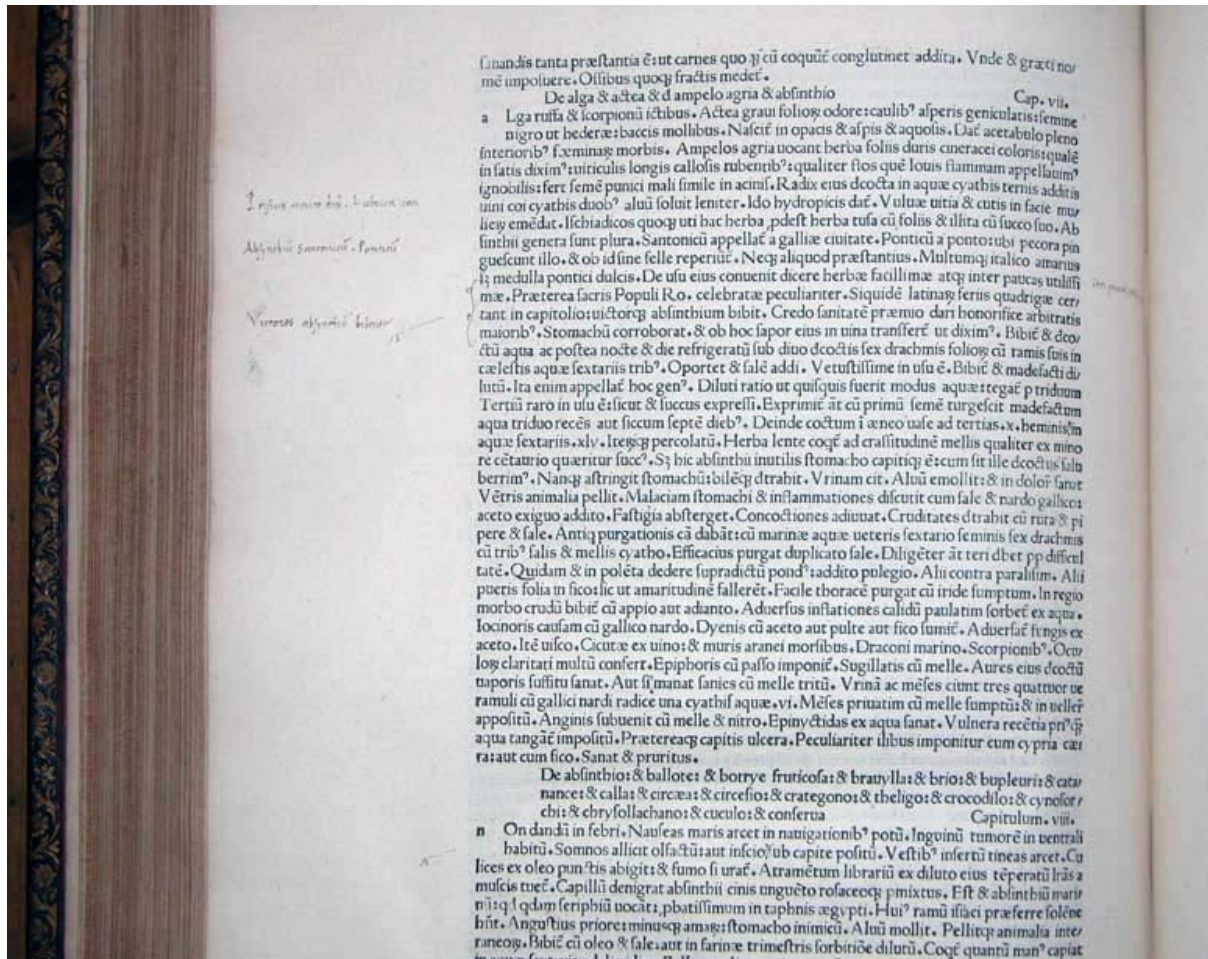 sanandis tanta præstantia ē: ut carnes quoqꝫ cū coquūt̄ conglutinet addita. Vnde & græci no/
mē imposuere. Ossibus quoqꝫ fractis medet̄.
De alga & actea & d ampelo agria & absinthio Cap. vii.
a Lga ruffa & scorpionū ictibus. Actea graui folioꝝ odore: caulibꝰ asperis genicularis: semine
nigro ut hederæ: baccis mollibus. Nascit̄ in opacis & aspis & aquosis. Dat̄ acetabulo pleno
interioribꝰ fæminaꝝ morbis. Ampelos agria uocant herba foliis duris cineracei coloris: qualē
in satis diximꝰ: uiticulis longis callosis rubentribꝰ: qualiter flos quē Iouis flammam appellauimꝰ
ignobilis: fert semē punici mali simile in acinis. Radix eius dcocta in aquæ cyathis ternis additis
uini coi cyathis duobꝰ aluū soluit leniter. Ido hydropicis dat̄. Vuluæ uitia & cutis in facie mu/
lieꝝ emēdat. Ischiadicos quoqꝫ uti hac herba ꝓdest herba tusa cū foliis & illita cū succo suo. Ab
sinthii genera sunt plura. Santonicū appellat̄ a galliæ ciuitate. Ponticū a ponto: ubi pecora pin
guescunt illo. & ob id sine felle reperiūt̄. Neqꝫ aliquod præstantius. Multumqꝫ italico amarius
lꝫ medulla pontici dulcis. De usu eius conuenit dicere herbæ facillimæ atqꝫ inter paucas utilissi
mæ. Præterea sacris Populi Ro. celebratæ peculiariter. Siquidē latinaꝝ feriis quadrigæ cer/
tant in capitolio: uictorqꝫ absinthium bibit. Credo sanitatē præmio dari honorifice arbitratis
maioribꝰ. Stomachū corroborat. & ob hoc sapor eius in uina transfert̄ ut diximꝰ. Bibit̄ & dco/
ctū aqua ac postea nocte & die refrigeratū sub diuo dcoctis sex drachmis folioꝝ cū ramis suis in
cælestis aquæ sextariis tribꝰ. Oportet & salē addi. Vetustissime in usu ē. Bibit̄ & madefacti di/
lutū. Ita enim appellat̄ hoc genꝰ. Diluti ratio ut quisquis fuerit modus aquæ: tegat̄ p triduum
Tertiū raro in usu ē: sicut & succus expressi. Exprimit̄ āt cū primū semē turgescit madefactum
aqua triduo recēs aut siccum septē diebꝰ. Deinde coctum ī æneo uase ad tertias. x. heminis, in
aquæ sextariis. xlv. Iteꝝqꝫ percolatū. Herba lente coqt̄ ad crassitudinē mellis qualiter ex mino
re cētaurio quæritur succꝰ. Sꝫ hic absinthii inutilis stomacho capitiqꝫ ē: cum sit ille dcoctus salu
berrimꝰ. Nanqꝫ astringit stomachū: bilēqꝫ dtrahit. Vrinam cit. Aluū emollit: & in dolore sanat
Vētris animalia pellit. Malaciam stomachi & inflammationes discutit cum sale & nardo gallico:
aceto exiguo addito. Fastigia absterget. Concoctiones adiuuat. Cruditates dtrahit cū ruta & pi
pere & sale. Antiq purgationis cā dabāt: cū marinæ aquæ ueteris sextario seminis sex drachmis
cū tribꝰ salis & mellis cyatho. Efficacius purgat duplicato sale. Diligēter āt teri dbet pp difficul
tatē. Quidam & in polēta dedere supradictū pondꝰ: addito pulegio. Alii contra paralisim. Alii
pueris folia in fico: sic ut amaritudinē fallerēt. Facile thoracē purgat cū iride sumptum. In regio
morbo crudū bibit̄ cū appio aut adianto. Aduersus inflationes calidū paulatim sorbet̄ ex aqua.
Iocinoris causam cū gallico nardo. Dyenis cū aceto aut pulte aut fico sumit̄. Aduersat̄ fungis ex
aceto. Itē uisco. Cicutæ ex uino: & muris aranei morsibus. Draconi marino. Scorpionibꝰ. Ocu/
loꝝ claritati multū confert. Epiphoris cū passo imponit̄. Sugillatis cū melle. Aures eius dcoctū
uaporis suffitu sanat. Aut si manat sanies cū melle tritū. Vrinā ac mēses ciunt tres quattuor ue
ramuli cū gallici nardi radice una cyathis aquæ. vi. Mēses priuatim cū melle sumptū: & in uellere
appositū. Anginis subuenit cū melle & nitro. Epinyctidas ex aqua sanat. Vulnera recētia priꝰqꝫ
aqua tangāt̄ impositū. Prætereaqꝫ capitis ulcera. Peculiariter ilibus imponitur cum cypria cæ/
ra: aut cum fico. Sanat & pruritus.
De absinthio: & ballote: & botrye fruticosa: & brauylla: & brio: & bupleuri: & cata/
nance: & calla: & circæa: & circesio: & crategono: & theligo: & crocodilo: & cynosor/
chi: & chrysollachano: & cuculo: & conserua Capitulum. viii.
n On dandū in febri. Nauseas maris arcet in nauigationibꝰ potū. Inguinū tumorē in uentrali
habitū. Somnos allicit olfactū: aut inscio sub capite positū. Vestibꝰ insertū tineas arcet. Cu
lices ex oleo punctis abigit: & fumo si urat̄. Atramētum librariū ex diluto eius tēperatū lrās a
muscis tuet̄. Capillū denigrat absinthii cinis unguēto rosaceoqꝫ pmixtus. Est & absinthiū mari/
nū: qd qdam seriphiū uocāt: ꝓbatissimum in taphnis ægypti. Huiꝰ ramū isiaci præferre solēne
hn̄t. Angustius priore: minusqꝫ amaꝝ: stomacho inimicū. Aluū mollit. Pellitqꝫ animalia inte/
raneoꝝ. Bibit̄ cū oleo & sale: aut in farinæ trimestris sorbitiōe dilutū. Coqt̄ quantū manꝰ capiat